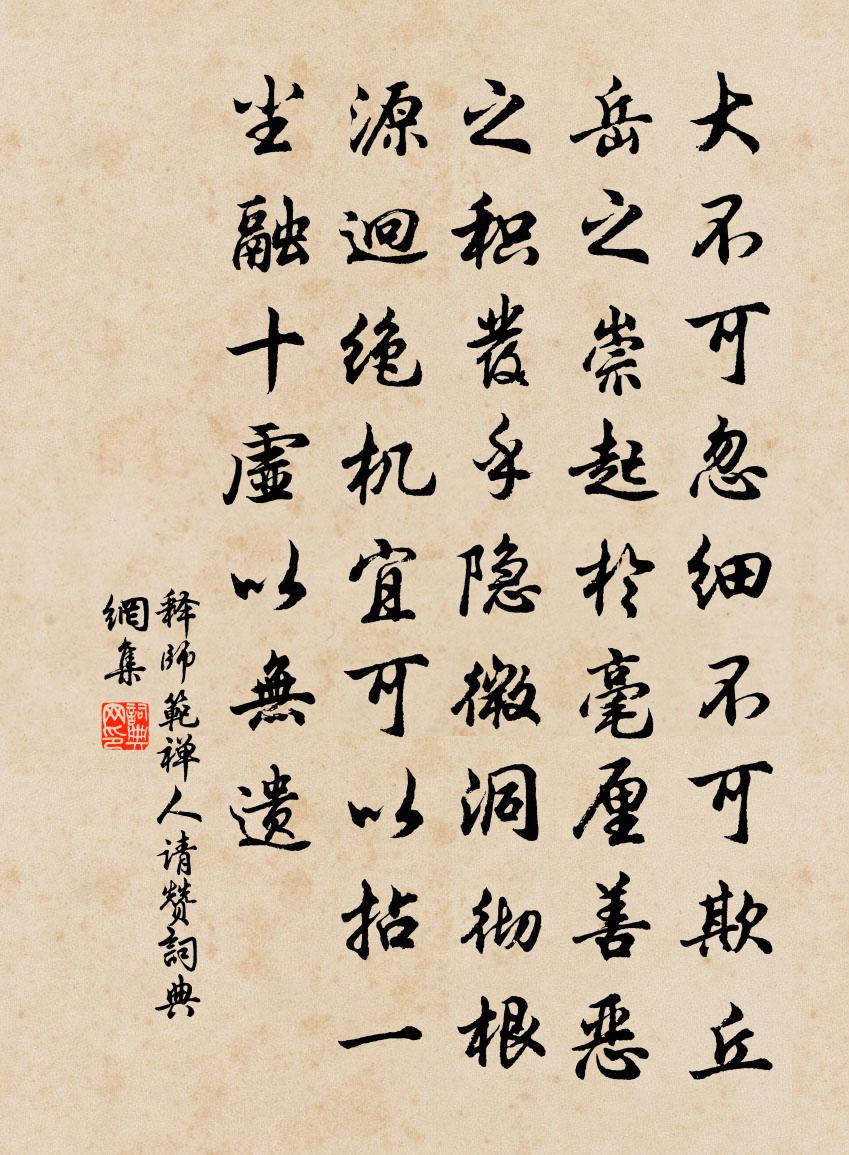 大不可忽细不可欺丘
岳之崇起於毫厘善恶
之积發乎隐微洞彻根
源逈绝机宜可以拈一
尘融十虚以無遗
释師範禅人请赞詞典
網集
詞典
网印